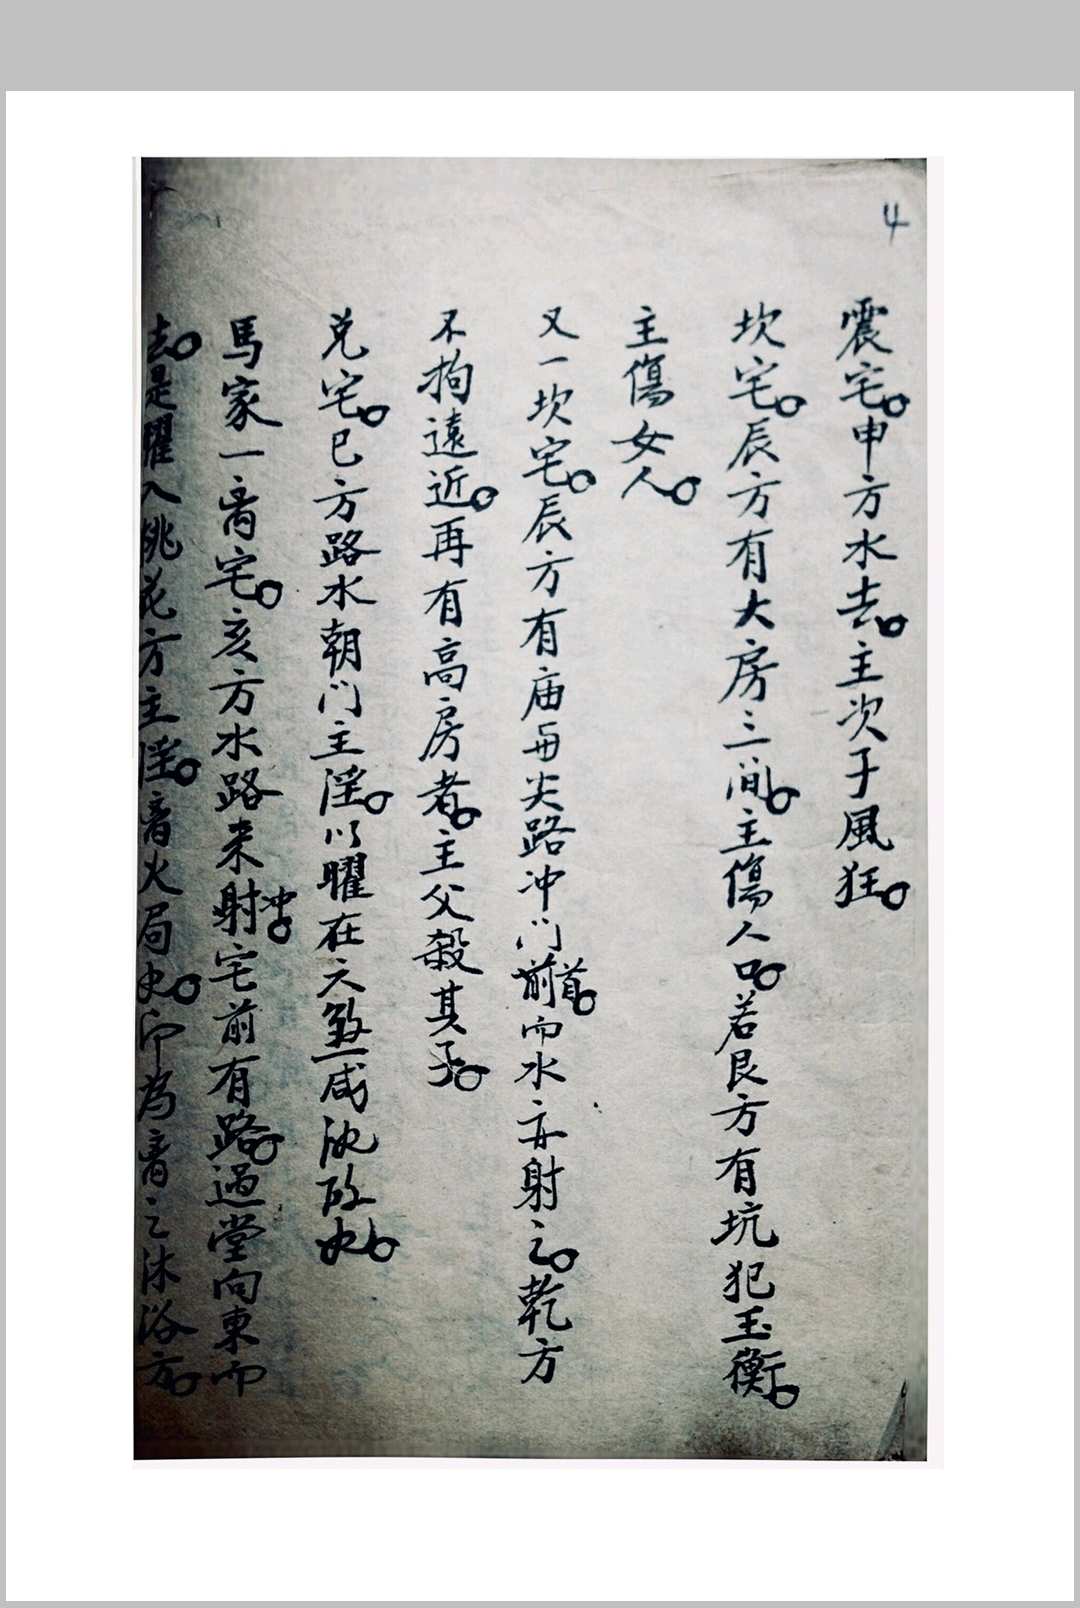 4
震宅。申方水去。主次子風狂。
坎宅。辰方有大房三间。主傷人口。若艮方有坑犯玉衡。
主傷女人。
又一坎宅。辰方有庙与尖路冲门前首。而水亦射之。乾方
不拘遠近。再有高房者。主父殺其子。
兑宅。巳方路水朝门主淫。以曜在六煞咸池故也。
馬家一离宅。亥方水路来射冲。宅前有路。過堂向東而
去。是曜入桃花方主淫。离火局也。卯為离之沐浴方。